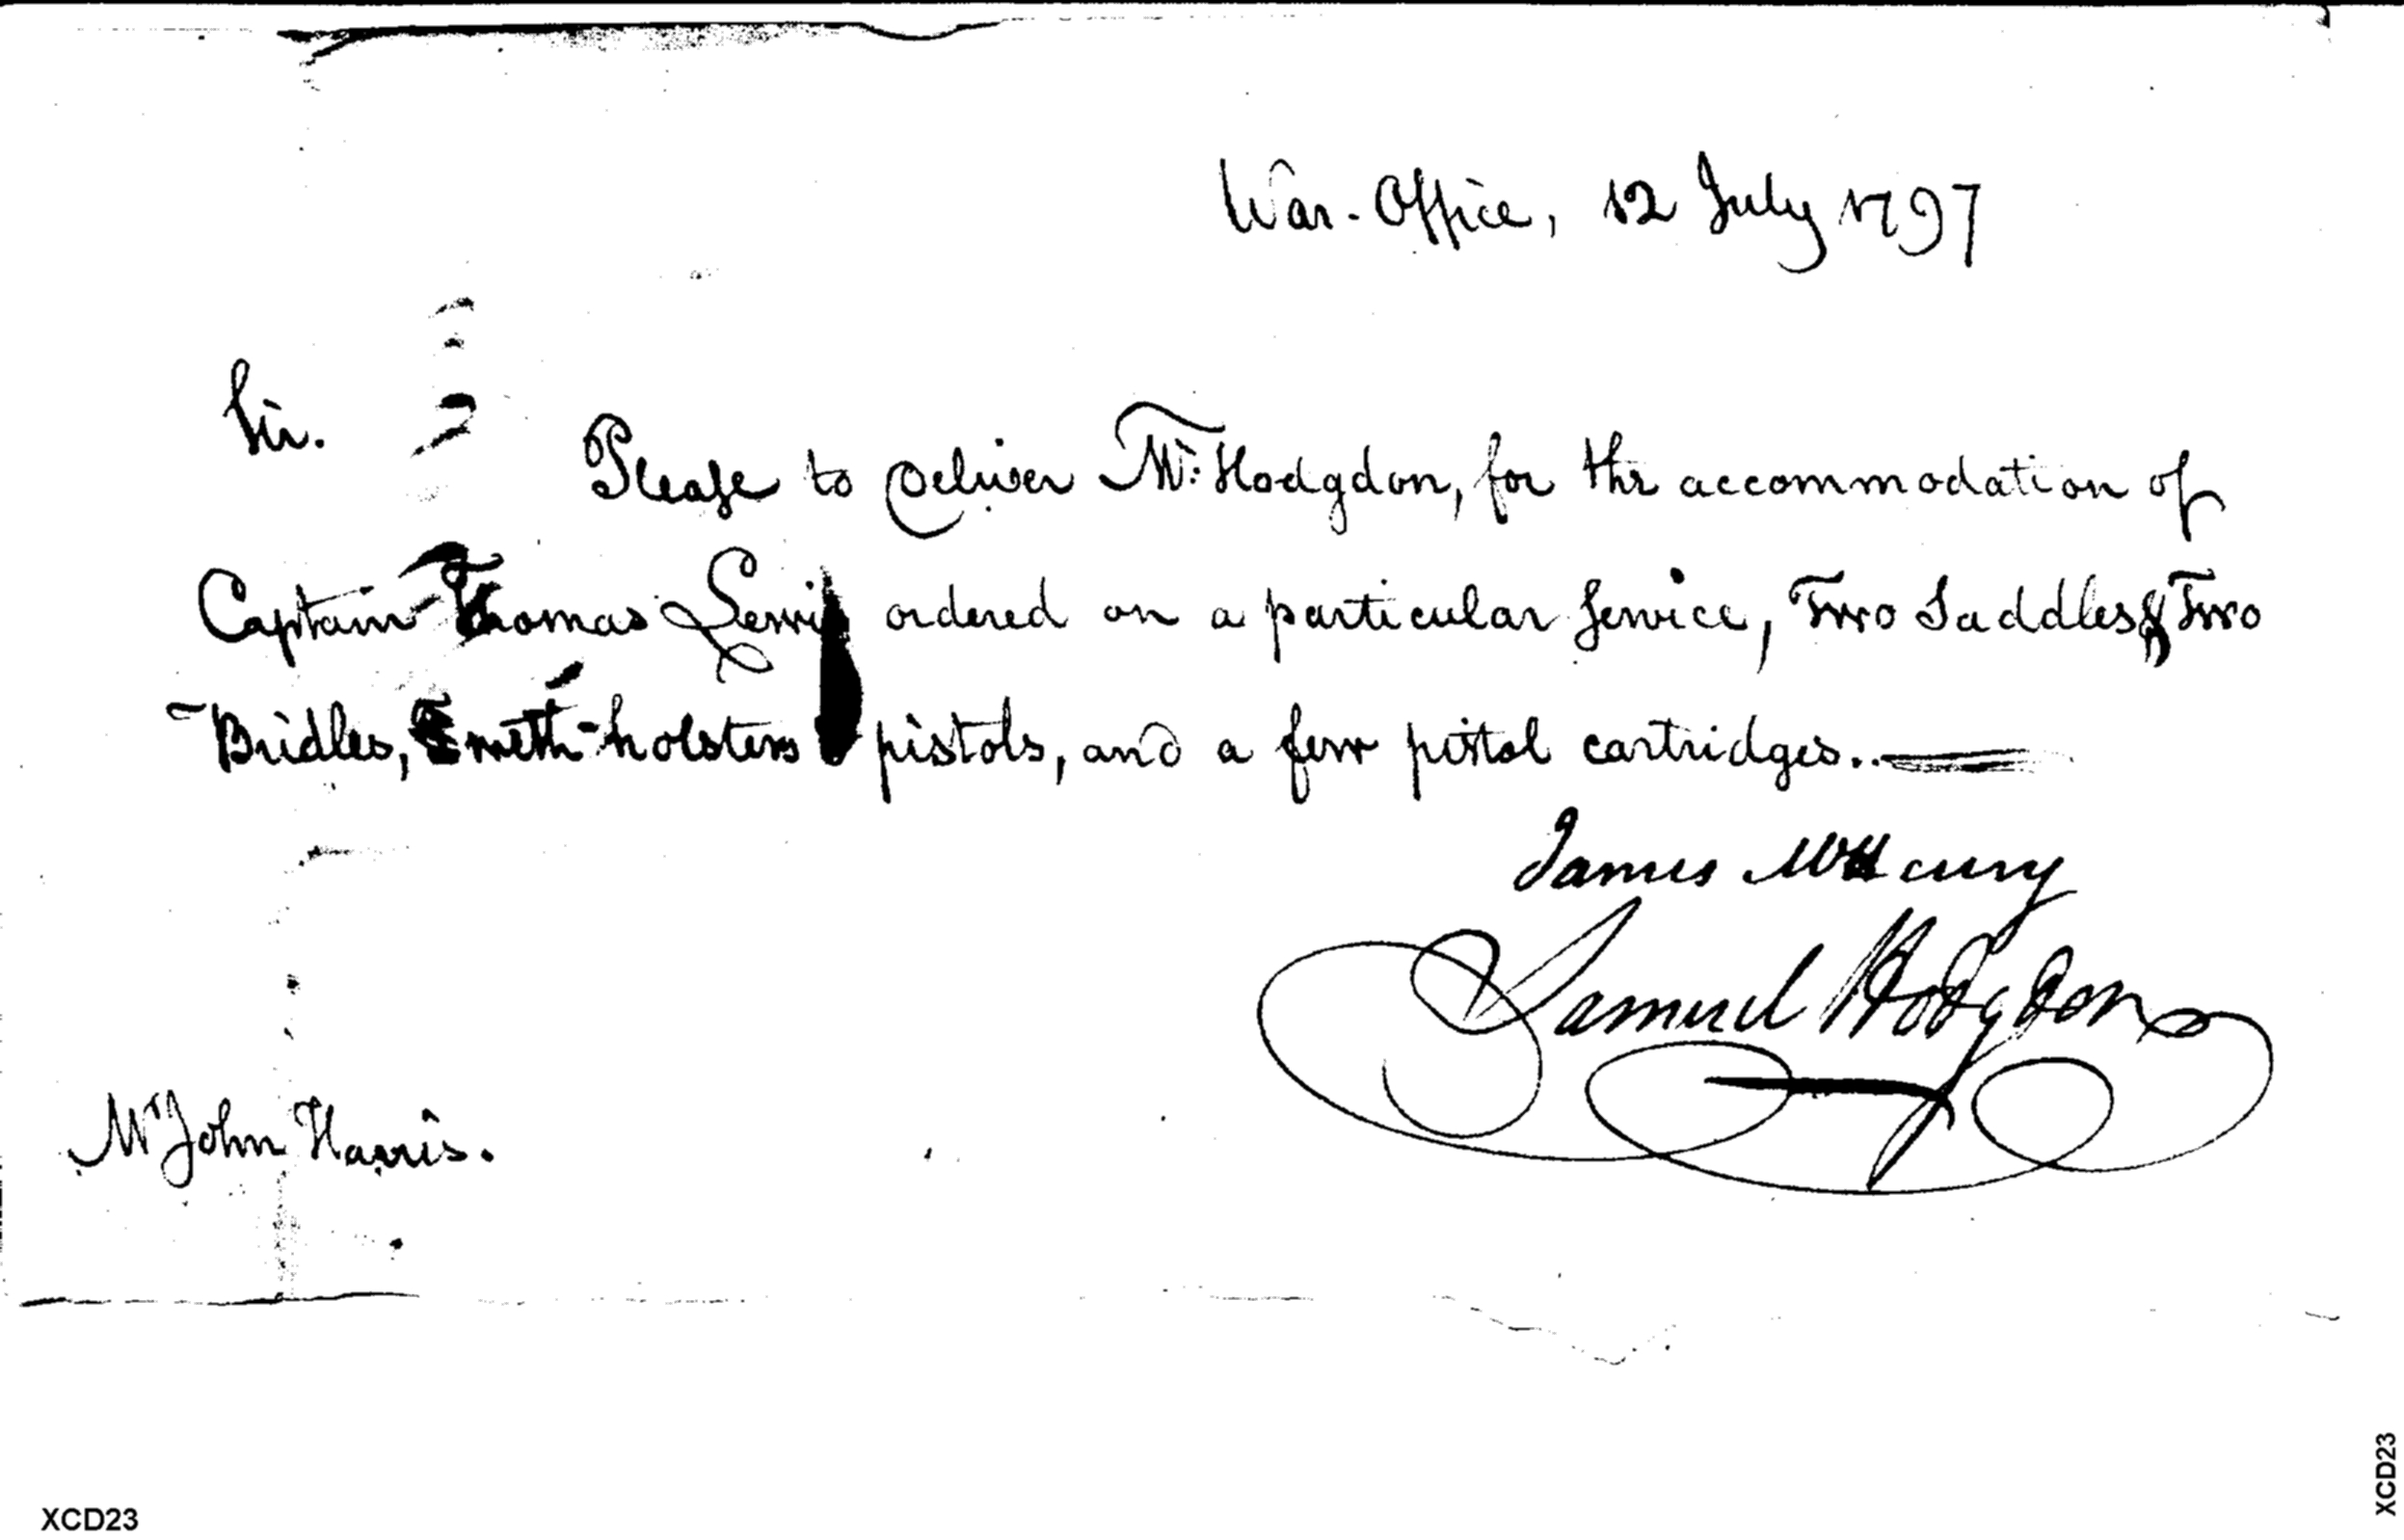 War-Office, 12 July 1797
Sir.
Please to Deliver Mr: Hodgdon, for the accommodation of
Captain Thomas Lewis ordered on a particular Service, Two Saddles & Two
Bridles, with holsters pistols, and a few pistol cartridges..
James McHenry
Samuel Hodgdon
Mr John Harris.
XCD23
XCD23